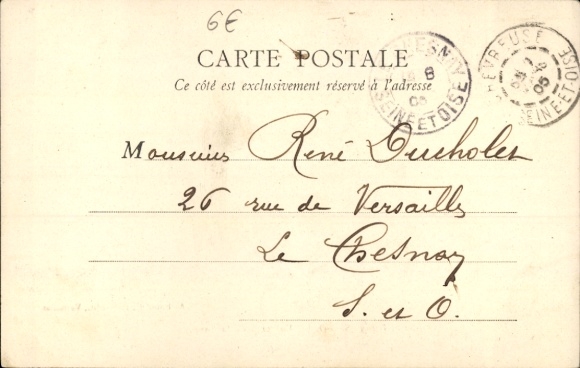 6€
CARTE POSTALE
Ce côté est exclusivement réservé à l'adresse
CHESNAY
8
05
SEINE ET OISE
CHEVREUSE
05
SEINE-ET-OISE
Monsieur René
26 rue de Versailles
Le Chesnay
S. et O.